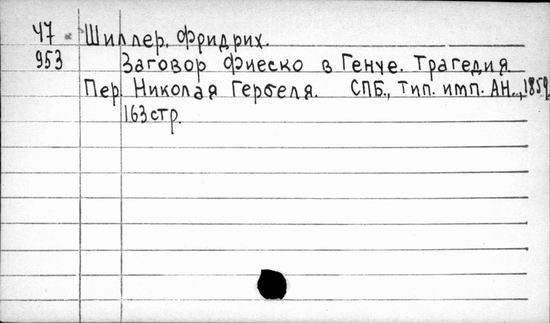 47 Шиллер, Фридрих.
953 Заговор Фиеско в Генуе. Трагедия
Пер. Николая Гербеля. СПБ., тип. имп. АН.., 1859
163 стр.